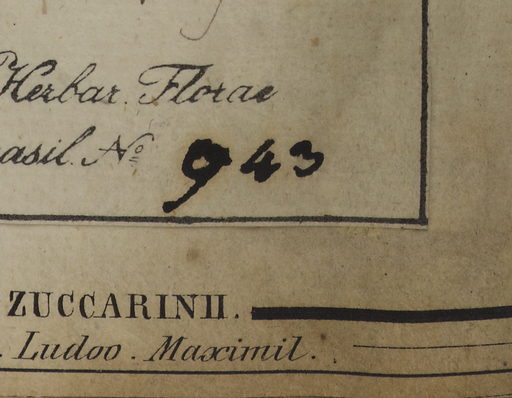 Herbar. Florae
asil. No 943
ZUCCARINII.
. Ludov. Maximil.